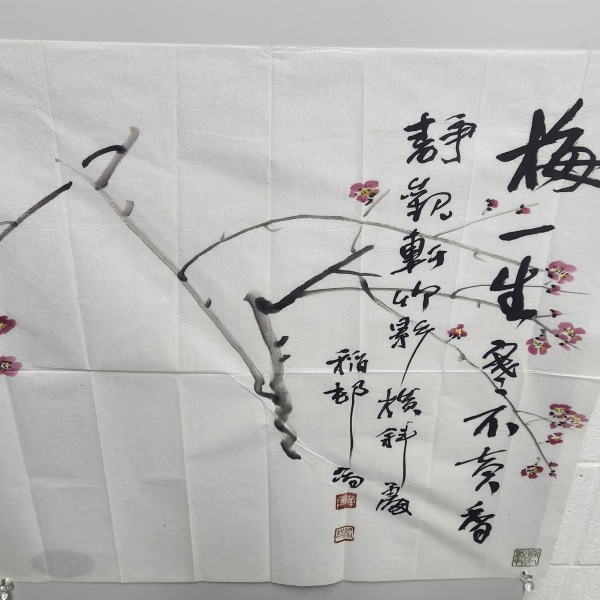 梅一生寒不賣香
靜觀軒竹影橫斜處
稻邨